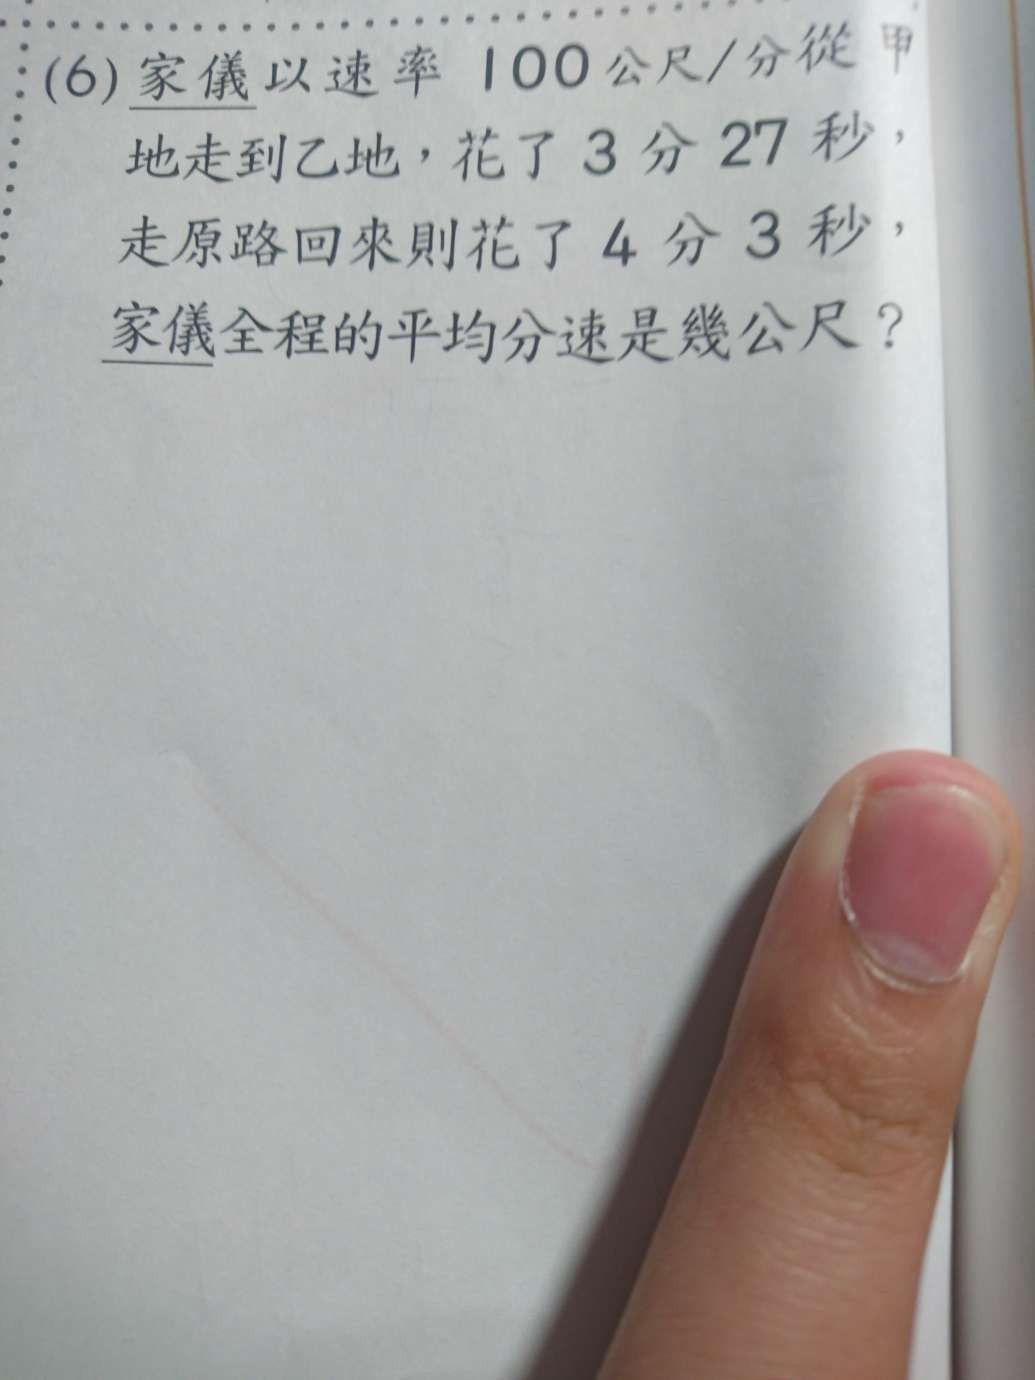 (6)家儀以速率 100公尺/分從甲
地走到乙地，花了3分27秒，
走原路回來則花了4分3秒，
家儀全程的平均分速是幾公尺？